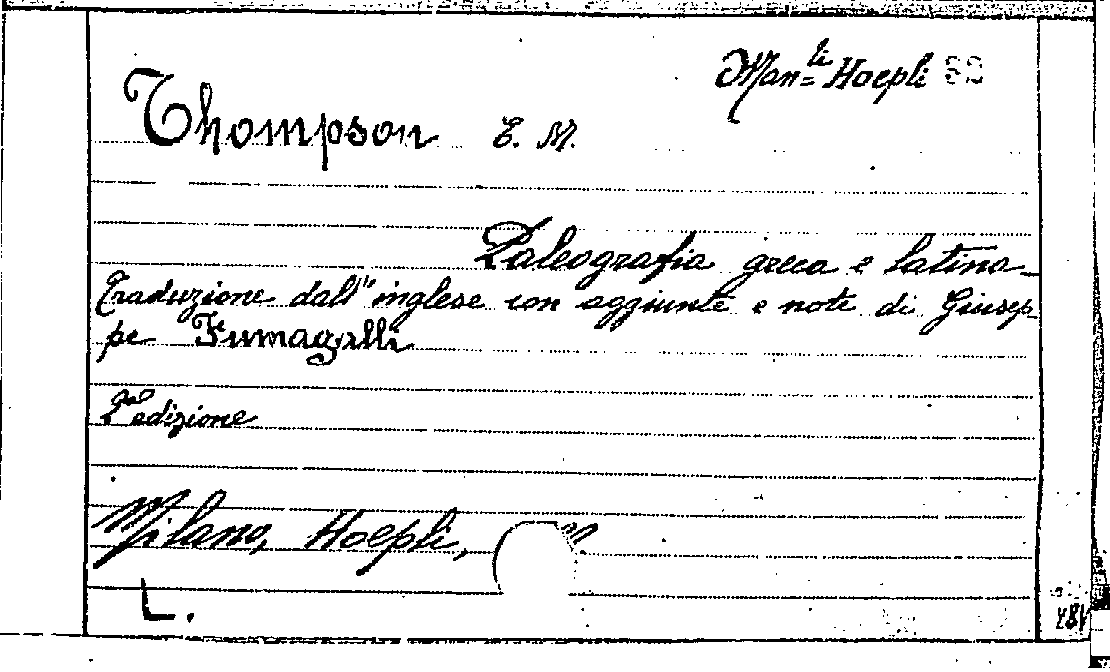 Man=li Hoepli
Thompson E. M.
Paleografia greca e latina_
Traduzione dall'inglese con aggiunte e note di Giusep-
pe Fumagalli
2a edizione
Milano, Hoepli,
L.